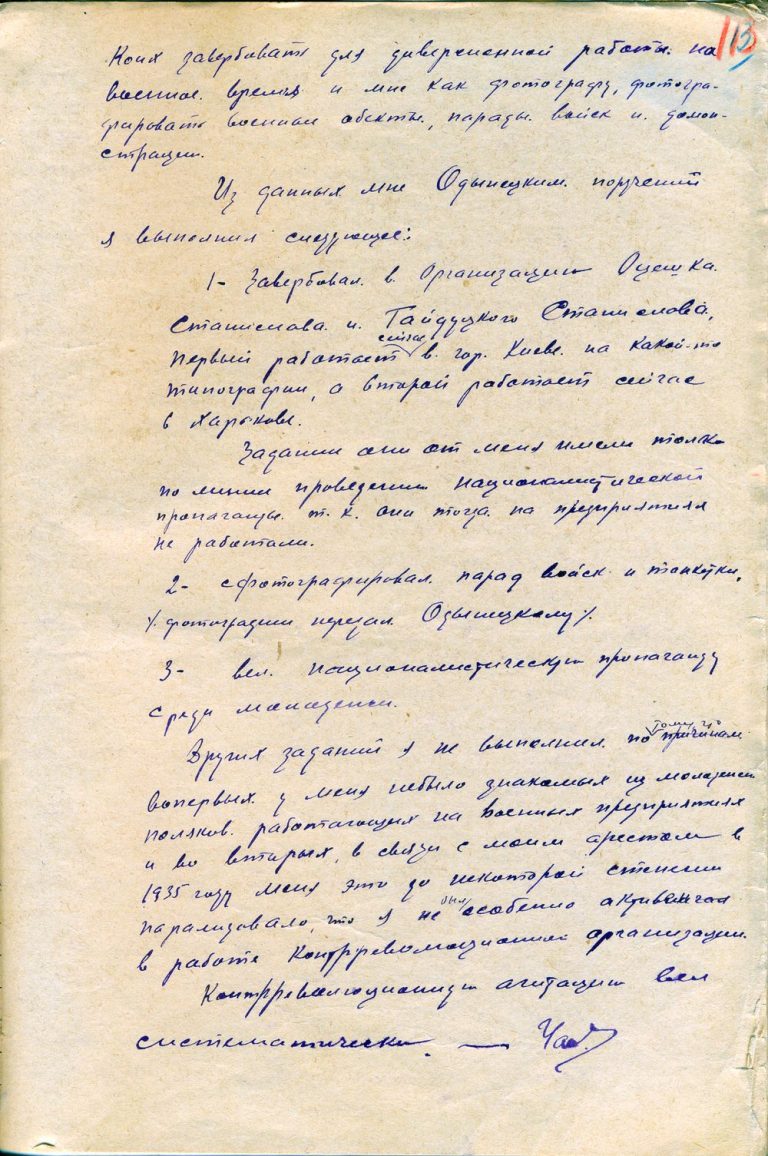 113
коих завербовать для диверсионной работы на
военное время и мне как фотографу, фотогра-
фировать военные обекты, парады войск и демон-
страции.
Из данных мне Одынецким поручений
я выполнил следующее:
1- Завербовал в организацию Оцешка
Станислова и Гайдуцкого Станислова,
первый работает сейчас в гор. Киеве на какой-то
типографии, а второй работает сейчас
в Харькове.
Задании они от меня имели только
по линии проведении националистической
пропаганды т.к. они тогда на предприятиях
не работали.
2- сфотографировал парад войск и танкетки,
/. фотографии передал Одынецкому /.
3- вел националистическую пропаганду
среди молодежи.
Других заданий я не выполнил по тому что причинам
вопервых у меня небыло знакомых из молодежи
поляков работающих на военных предприятиях
и во вторых, в связи с моим арестом в
1935 году меня это до некоторой степени
парализовало, что я не был особенно активен
в работе контрреволюционной организации.
Контрреволюционную агитацию вел
систематически. —